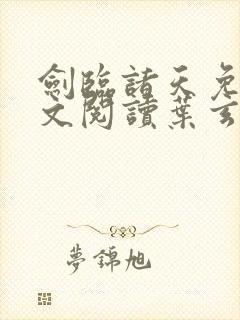 劍臨諸天免
文閱讀葉玄
夢錦旭